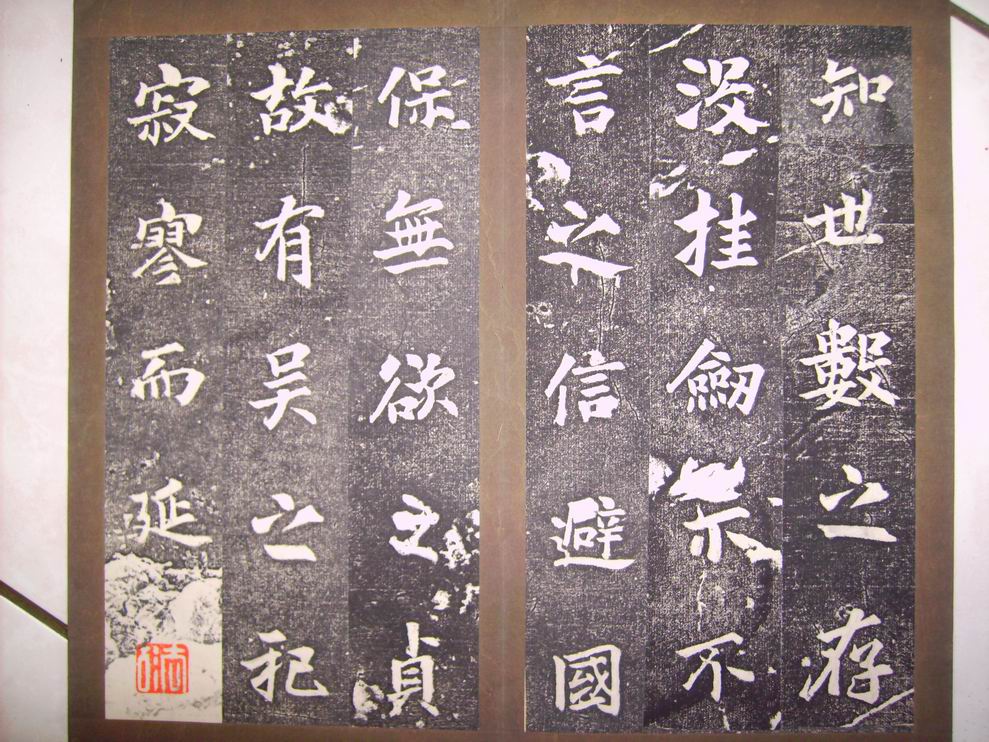 知世數之存
没挂劔示不
言之信避國
保無欲之貞
故有吴之祀
寂寥而延